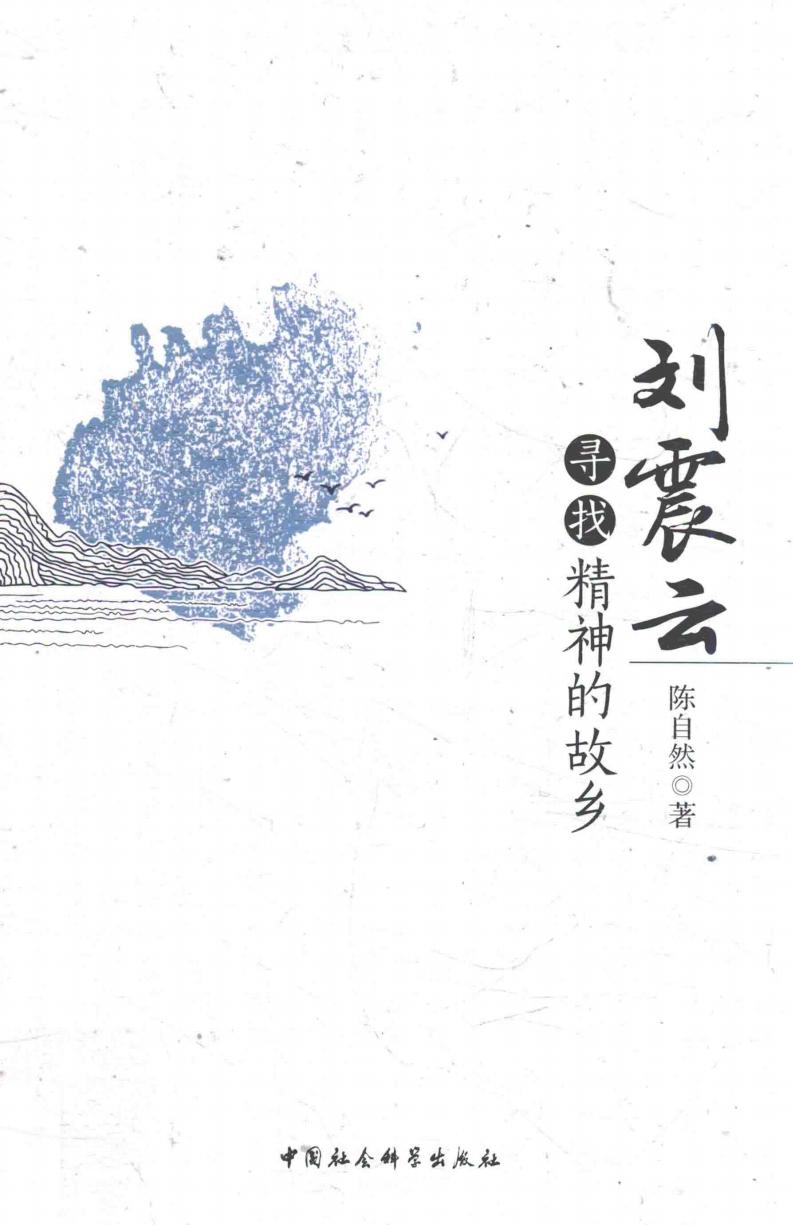 刘震云
寻找精神的故乡
陈自然◎著
中国社会科学出版社